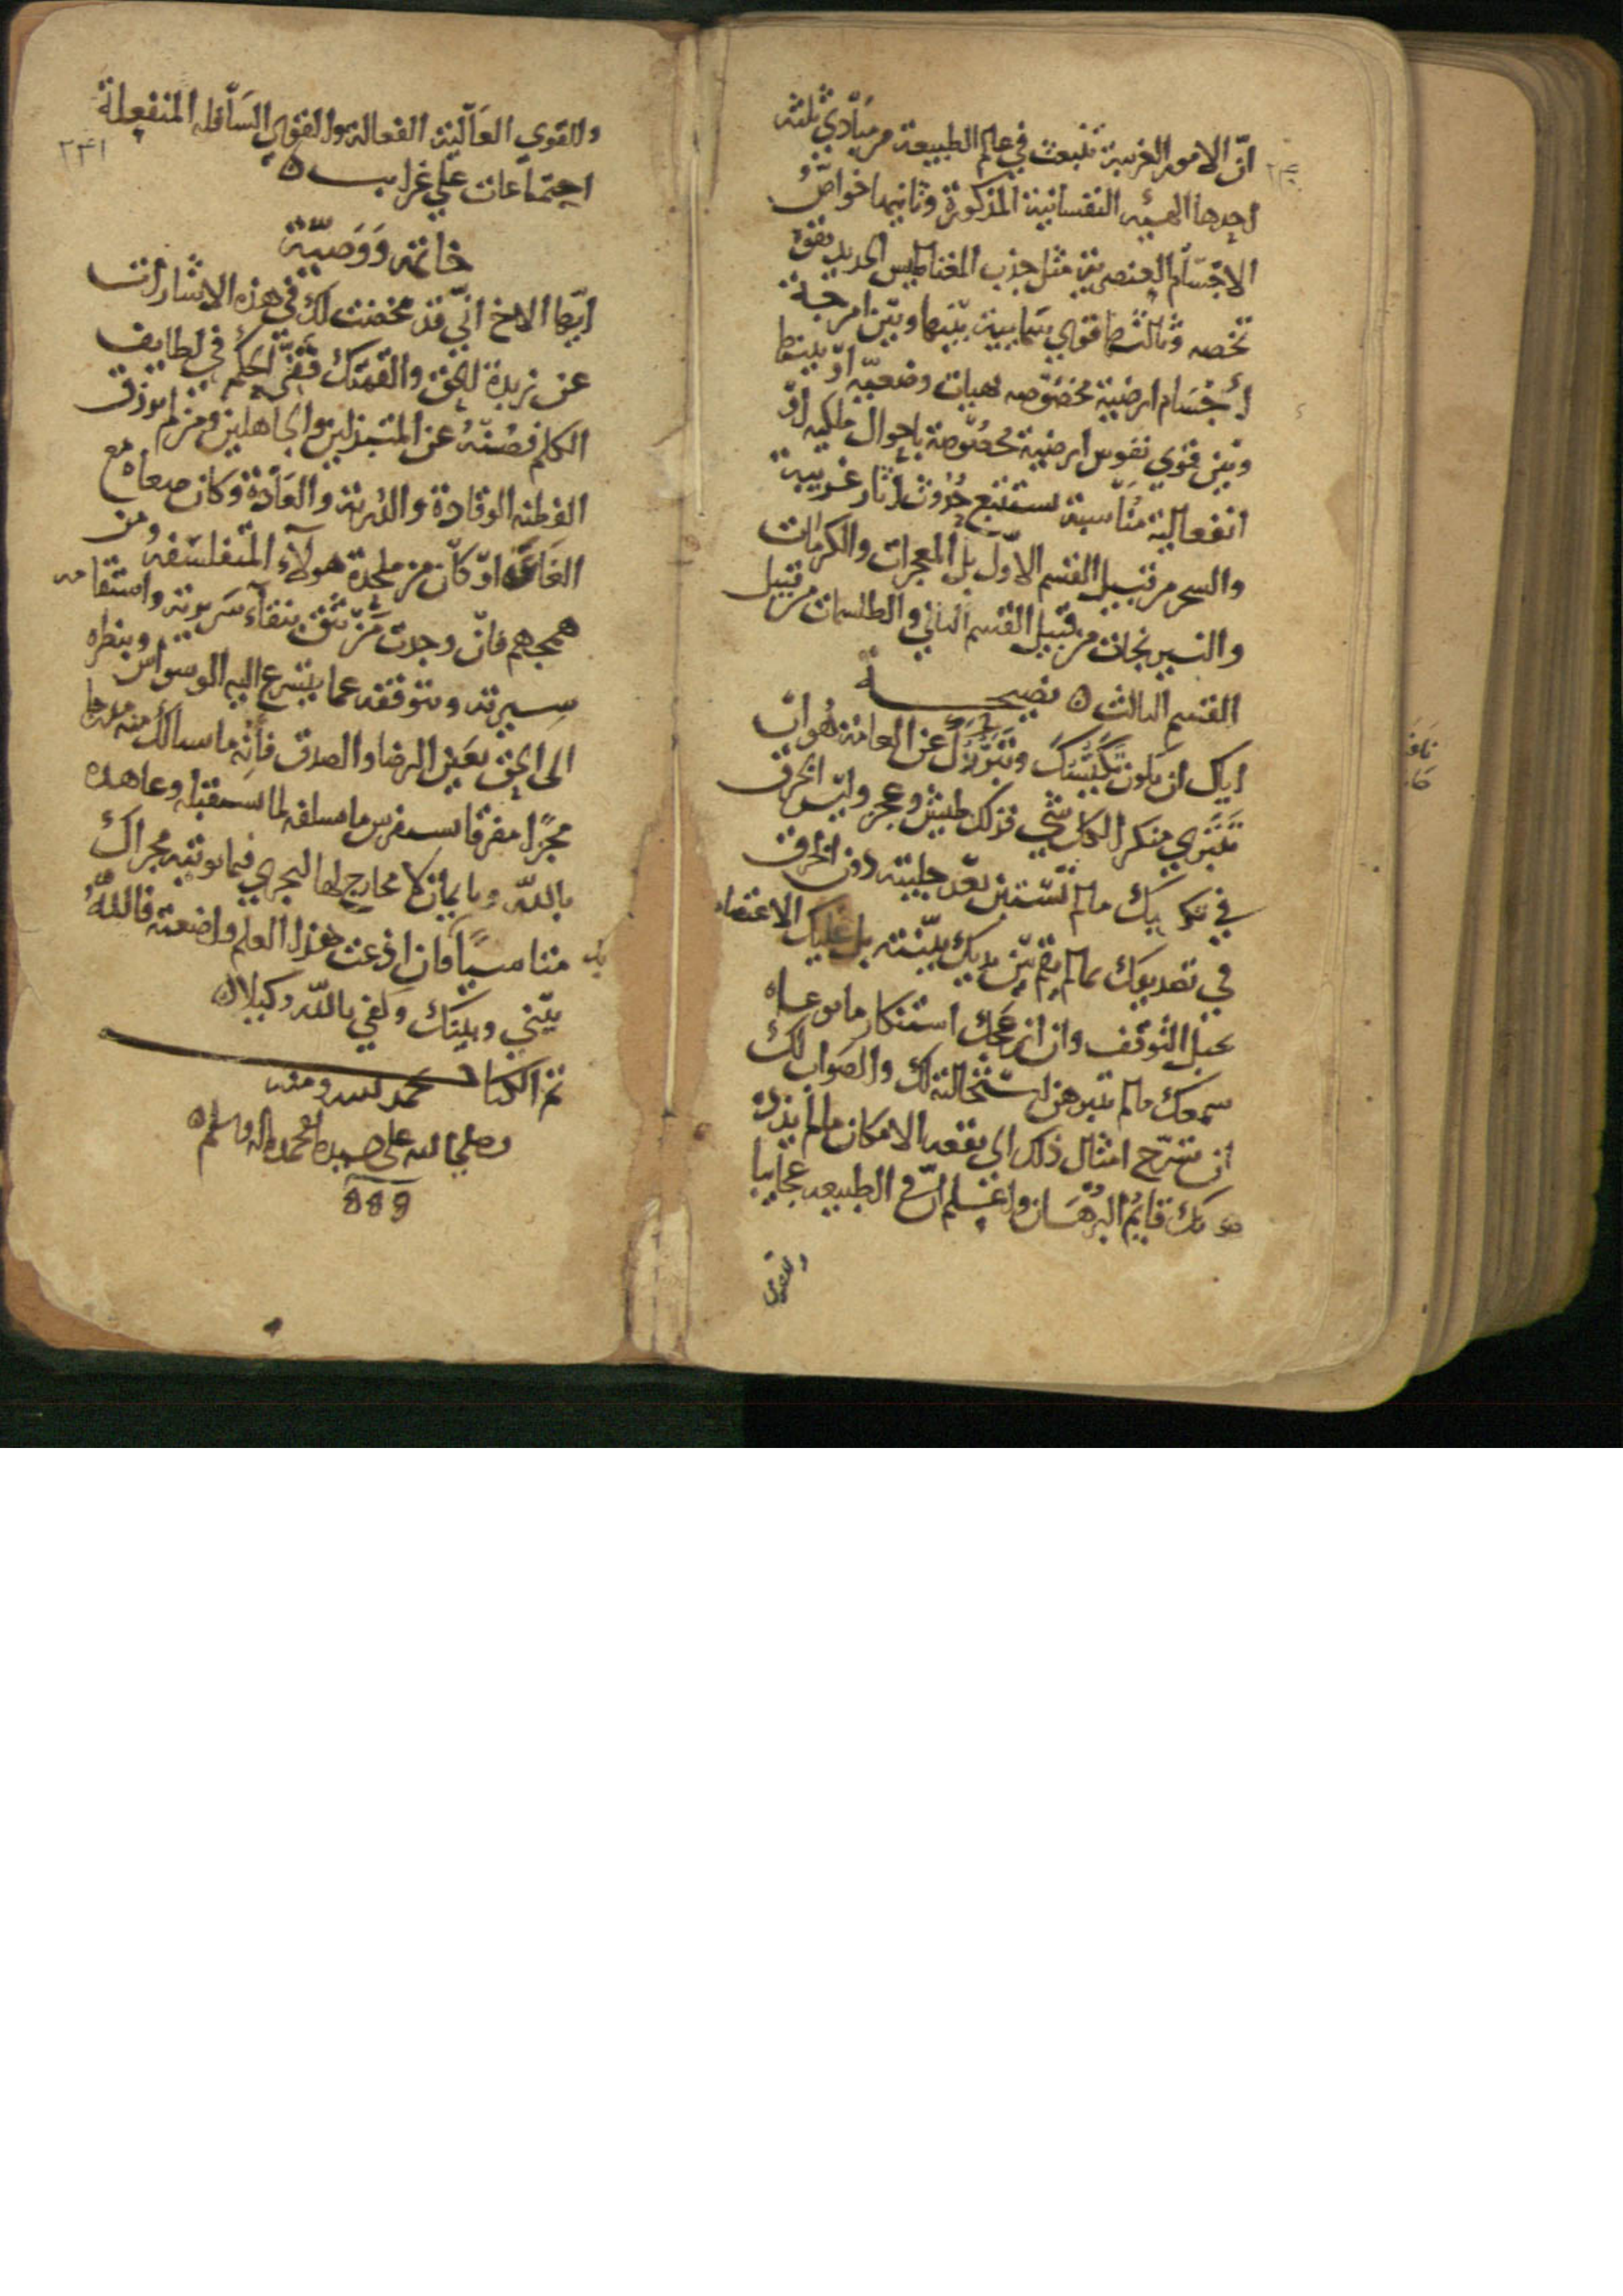 انّ الامور الغريبة تنبعث في عالم الطبيعة من مبادي ثلثه
احدها الهيئه النفسانية المذكورة وثانيها خواصّ
الاجسام العنصرية مثل جذب المغناطيس الحديد بقوة
تخصه وثالثها قوي سماية بينها وبين امزجة
اجسام ارضية مخصوصه بهيات وضعيّه او بينها
وبين قوي نفوس ارضية مخصوصة باحوال ملكيه او
انفعالية مناسبة تستتبع حدوث اثار غريبة
والسحر من قبيل القسم الاول بل المعجزات والكرمات
والنيرنجات من قبيل القسم الثاني والطلسمات من قبيل
القسم الثالث ه نصيحة
اياك ان يكون تكيّسك وتبرزك عن العامة هو ان
تنبري منكرا لكل شي فذلك طيش وعجز وليس الخرق
في تكذيبك مالم تستبن بعد جليته دون الخرق
في تصديقك بمالم يقم بين يديك بيّنته بل عليك الاعتصام
بحبل التوقف وان ازعجك استنكار مايوعاه
سمعك مالم تتبرهن استحالته لك والصواب لك
ان تسرّح امثال ذلك الي بقعة الامكان مالم يذدك
عنك قايم البرهان واعلم انّ في الطبيعه عجايبا
وللقوي
٢٤١
وللقوي العالية الفعالة وللقوي السافله المنفعلة
اجتماعات علي غرايب ه
خاتمه ووصيّة
ايّها الاخ انّي قد مخضت لك في هذه الاشارات
عن زبدة الحق والقمتك قفيّ الحكم في لطايف
الكلم فصنه عن المتبذلين والجاهلين ومن لم يوزق
الفطنه الوقادة والدربة والعادة وكان صغاه مع
الغاغة او كان من ملحدة هولاء المتفلسفه ومن
همجهم فان وجدت من تثق بنقاء سريرته واستقامه
سيرته وبتوقفه عما يتسرع اليه الوسواس وبنظره
الى الحق بعين الرضا والصدق فاته ماسالك منه مدرجا
مجزا مفرقا تستفرس مما تسلفه لما تستقبله وعاهده
بالله وبايمان لا مخارج لها ليجري فيما يوتيه مجراك
متاسيا فان اذعت هذا العلم واضعته فالله
بيني وبينك وكفي بالله وكيلا ه
تم الكتاب بحمد الله ومنه
وصلى الله على سيدنا محمد واله وسلم